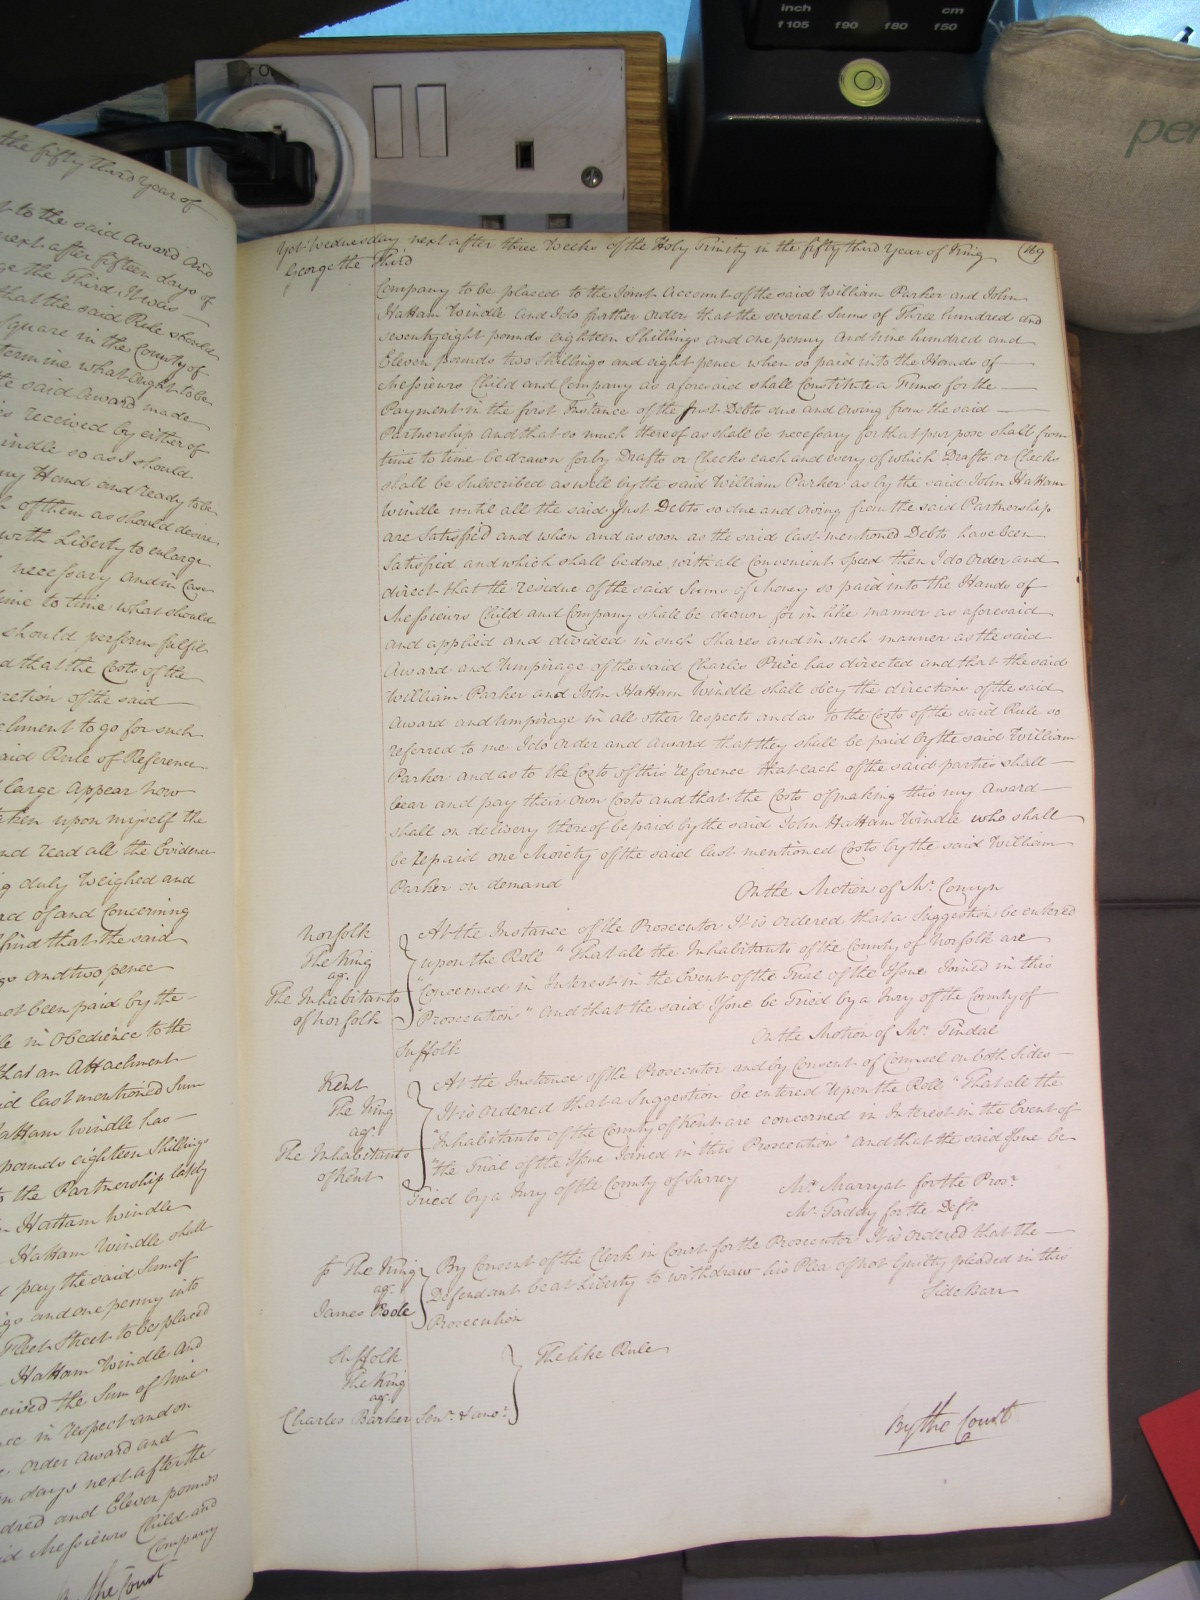 inch cm
f105 f90 f80 f50
per
the fifty third Year of
t to the said Award and
next after fifteen days of
ge the Third It was
that the said Rule should
Square in the County of
termine what ought to be
te said Award made
is received by either of
indle so as I should
my Hand and ready to be
h of them as should desire
with Liberty to enlarge
necessary and in Case
ime to time what should
should perform fulfil
d that the Costs of the
cretion of the said
chment to go for such
said Rule of Reference
large appear how
aken upon myself the
nd read all the Evidence
g duly weighed and
rd of and Concerning
find that the said
gs and two pence
not been paid by the
le in Obedience to the
that an Attachment
id last mentioned Sum
Hattam Windle has
pounds eighteen Shillings
to the Partnership lately
n Hattam Windle
Hattam Windle shall
d pay the said Sum of
gs and one penny into
Fleet Street to be placed
Hattam Windle and
ceived the Sum of Nine
ce in respect and on
order award and
n days next after the
dred and Eleven pounds
id Messieurs Child and
Company
By the Court
Yet Wednesday next after three Weeks of the Holy Trinity in the fifty third Year of King 169
George the Third
Company to be placed to the Joint Account of the said William Parker and John
Hattam Windle and I do further order that the several Sums of Three hundred and
seventy eight pounds eighteen Shillings and one penny and nine hundred and
Eleven pounds two Shillings and eight pence when so paid into the Hands of
Messieurs Child and Company as aforesaid shall Constitute a Fund for the
Payment in the first Instance of the Just Debts due and owing from the said
Partnership and that so much thereof as shall be necessary for that purpose shall from
time to time be drawn for by Drafts or Checks each and every of which Drafts or Checks
shall be Subscribed as well by the said William Parker as by the said John Hattam
Windle until all the said Just Debts so due and owing from the said Partnership
are Satisfied and when and as soon as the said last mentioned Debts have been
Satisfied and which shall be done with all Convenient Speed then I do Order and
direct that the residue of the said Sums of Money so paid into the Hands of
Messieurs Child and Company shall be drawn for in like manner as aforesaid
and applied and divided in such Shares and in such manner as the said
Award and Umpirage of the said Charles Price has directed and that the said
William Parker and John Hattam Windle shall obey the directions of the said
Award and Umpirage in all other respects and as to the Costs of the said Rule so
referred to me I do Order and Award that they shall be paid by the said William
Parker and as to the Costs of this reference that each of the said parties shall
bear and pay their own Costs and that the Costs of making this my Award
shall on delivery thereof be paid by the said John Hattam Windle who shall
be repaid one Moiety of the said last mentioned Costs by the said William
Parker on demand
On the Motion of Mr. Comyn
Norfolk
The King
agt.
The Inhabitants
of Norfolk
At the Instance of the Prosecutor It is ordered that a Suggestion be entered
upon the Roll "That all the Inhabitants of the County of Norfolk are
"Concerned in Interest in the Event of the Trial of the Issue Joined in this
"Prosecution" and that the said Issue be Tried by a Jury of the County of
Suffolk
On the Motion of Mr. Tindal
Kent
The King
agt.
The Inhabitants
of Kent
At the Instance of the Prosecutor and by Consent of Counsel on both Sides
It is ordered that a Suggestion be entered upon the Roll "That all the
"Inhabitants of the County of Kent are concerned in Interest in the Event of
"the Trial of the Issue Joined in this Prosecution" and that the said Issue be
Tried by a Jury of the County of Surrey
Mr. Marryat for the Pros.r
Mr. Taddy for the Deft.
The King
agt.
James Poole
By Consent of the Clerk in Court for the Prosecutor It is ordered that the
Defendant be at Liberty to withdraw his Plea of not Guilty pleaded in this
Prosecution
Side Barr
Suffolk
The King
agt.
Charles Barker Senr. & anor.
The like Rule
By the Court